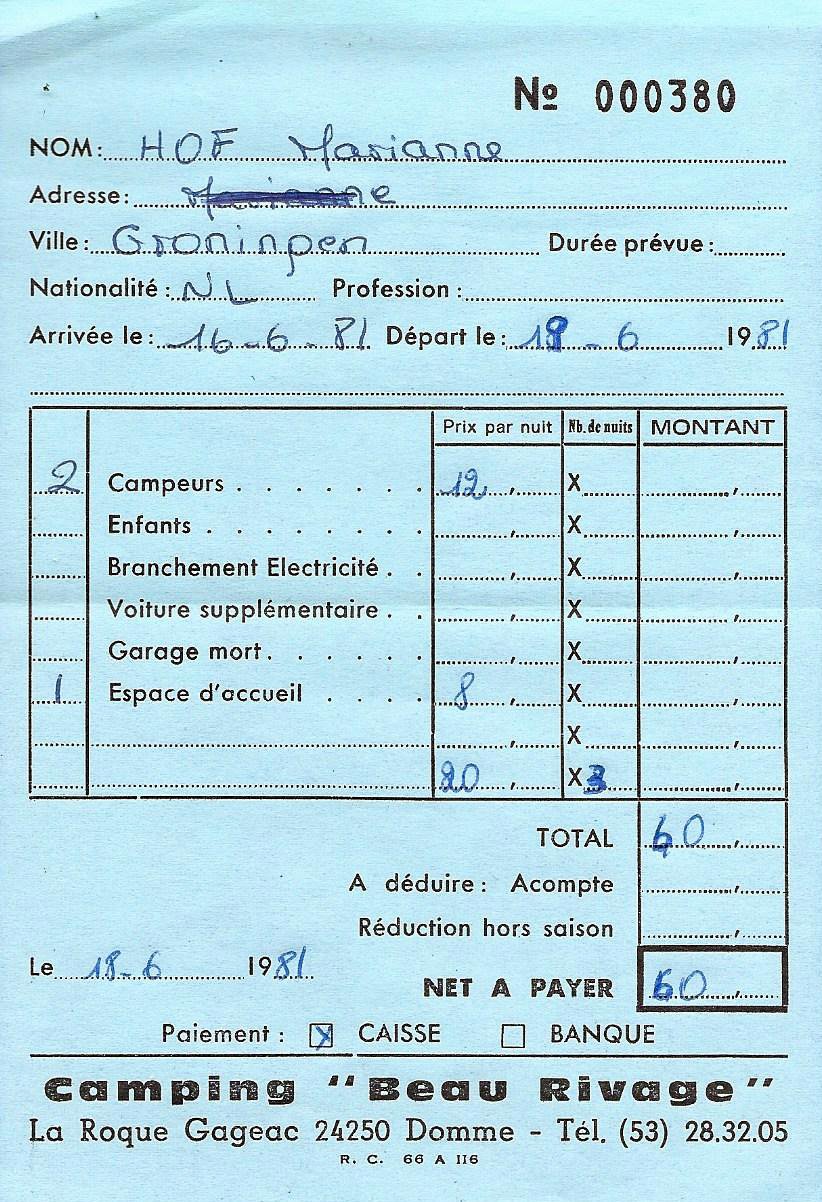 Nº 000380
NOM: HOF Marianne
Adresse:
Ville: Groningen Durée prévue:
Nationalité: NL Profession:
Arrivée le: 16-6-81 Départ le: 19-6 1981
Prix par nuit Nb. de nuits MONTANT
2 Campeurs 12, X ,
Enfants , X ,
Branchement Electricité , X ,
Voiture supplémentaire , X ,
Garage mort , X ,
1 Espace d'accueil 8, X ,
, X ,
20, X 3 ,
TOTAL 60,
A déduire: Acompte ,
Réduction hors saison ,
Le 18-6 1981
NET A PAYER 60,
Paiement: X CAISSE BANQUE
Camping "Beau Rivage"
La Roque Gageac 24250 Domme - Tél. (53) 28.32.05
R. C. 66 A 116